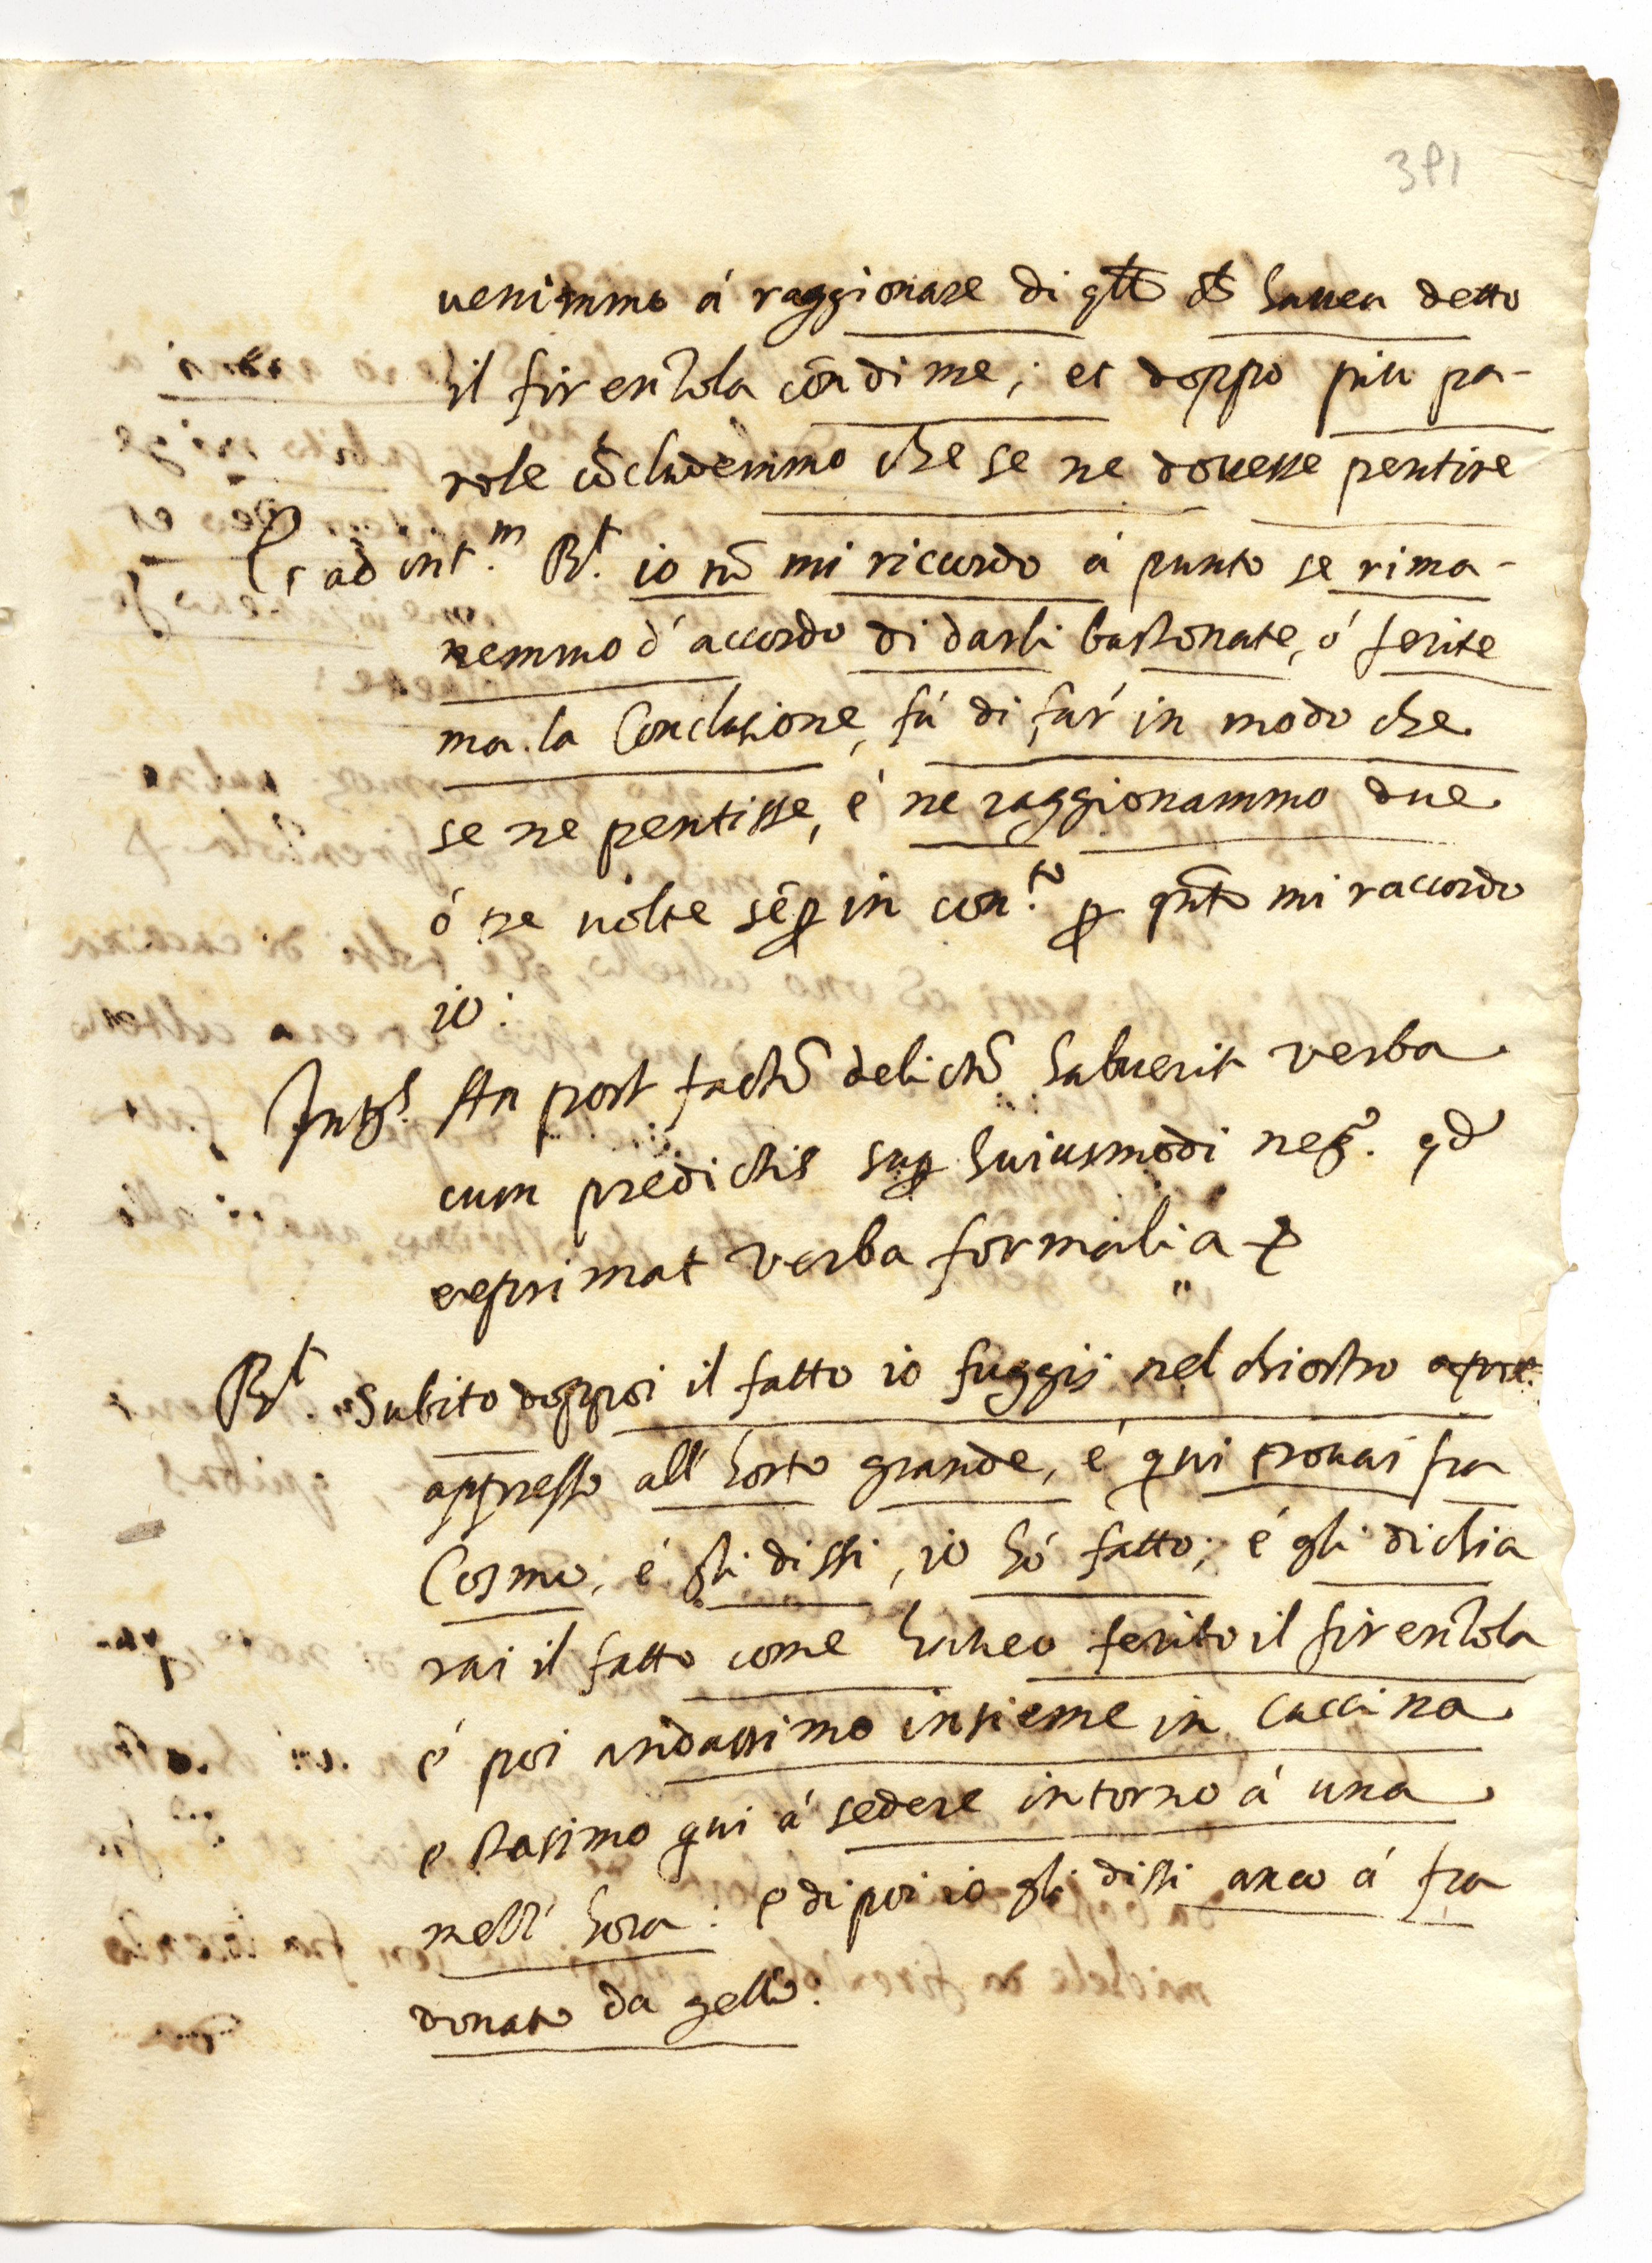 391
uenimmo á raggionare di qllo ch hauea detto
il firenzola cõ di me; et doppo piu pa-
role cõcludemmo che se ne douesse pentire
Et ad int.m Rt. io nõ mi ricordo á punto se rima-
nemmo d'accordo di darli bastonate, ó ferite
ma la Conclusione, fú di far in modo che
se ne pentisse, é ne raggionammo due
ó tre uolte sẽp in con.to p qnto mi raccordo
io:
Intgs. An post factũ delictũ habuerit verba
cum predictis sup huiusmodi neg.o qd
exprimat verba formalia
Rt. Subito doppoi il fatto io fuggij nel chiostro apre
appresso all'horto grande, é qui trouai fra
Cosmo, é gli dissi, io hó fatto; é gli dichia
rai il fatto come haueo ferito il firenzola
é poi andassimo insieme in Cuccina
e stasimo qui á sedere intorno á una
mezz'hora: e di poi io gli dissi anco á fra
donato da gello.